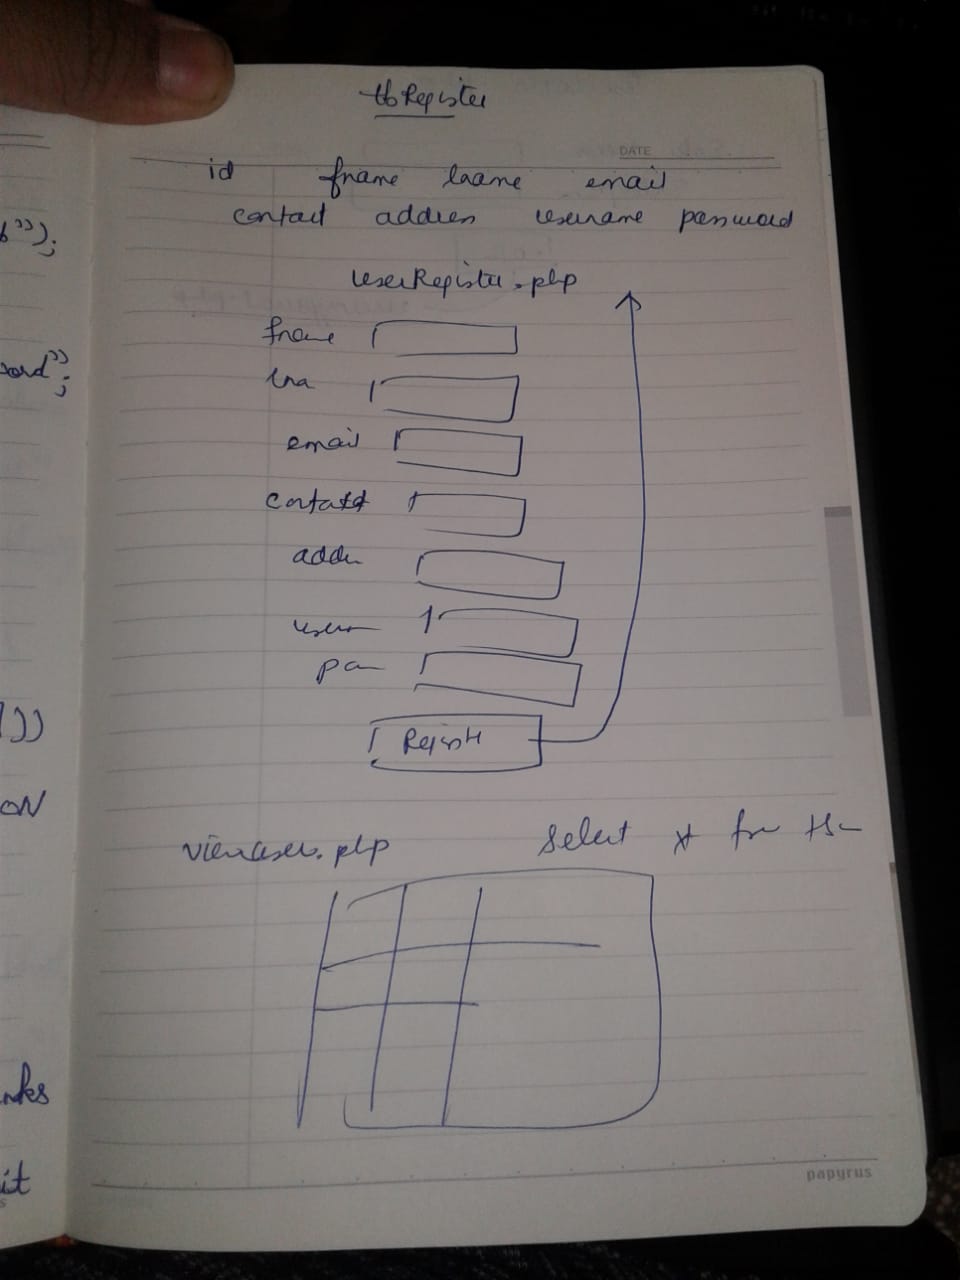 tbRegister
DATE
id fname lname email
contact address username password
userRegister.php
fname
lna
email
contact
addr
user
pa
Register
viewuser.php Select * fro
b"));
word";
]))
ON
nks
it
papyrus